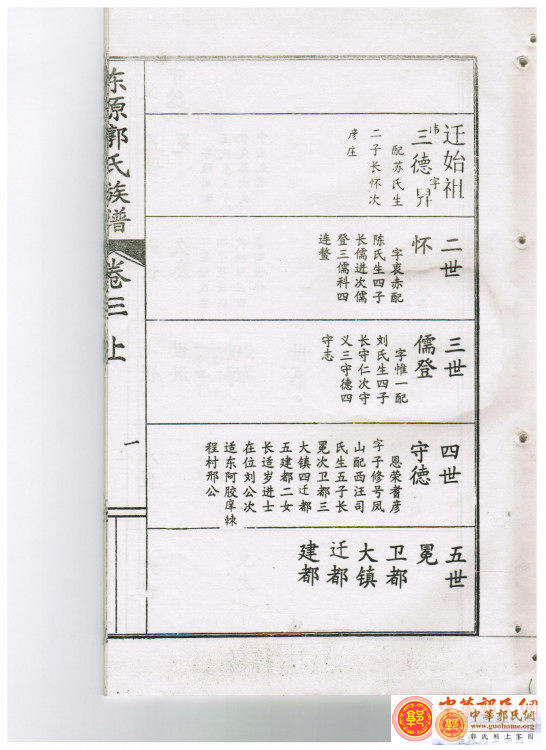 迁始祖
讳三字
德昇
配苏氏生
二子长怀次
彦庄
二世
怀
字衷赤配
陈氏生四子
长儒进次儒
登三儒科四
连鳌
三世
儒登
字惟一配
刘氏生四子
长守仁次守
义三守德四
守志
四世
守德
恩荣耆彦
字子修号凤
山配西汪司
氏生五子长
冕次卫都三
大镇四迁都
五建都二女
长适岁进士
在位刘公次
适东阿胶庠棘
程村邢公
五世
冕
卫都
大镇
迁都
建都
东原郭氏族谱
卷三上
一
中華郭氏網
www.guohome.com